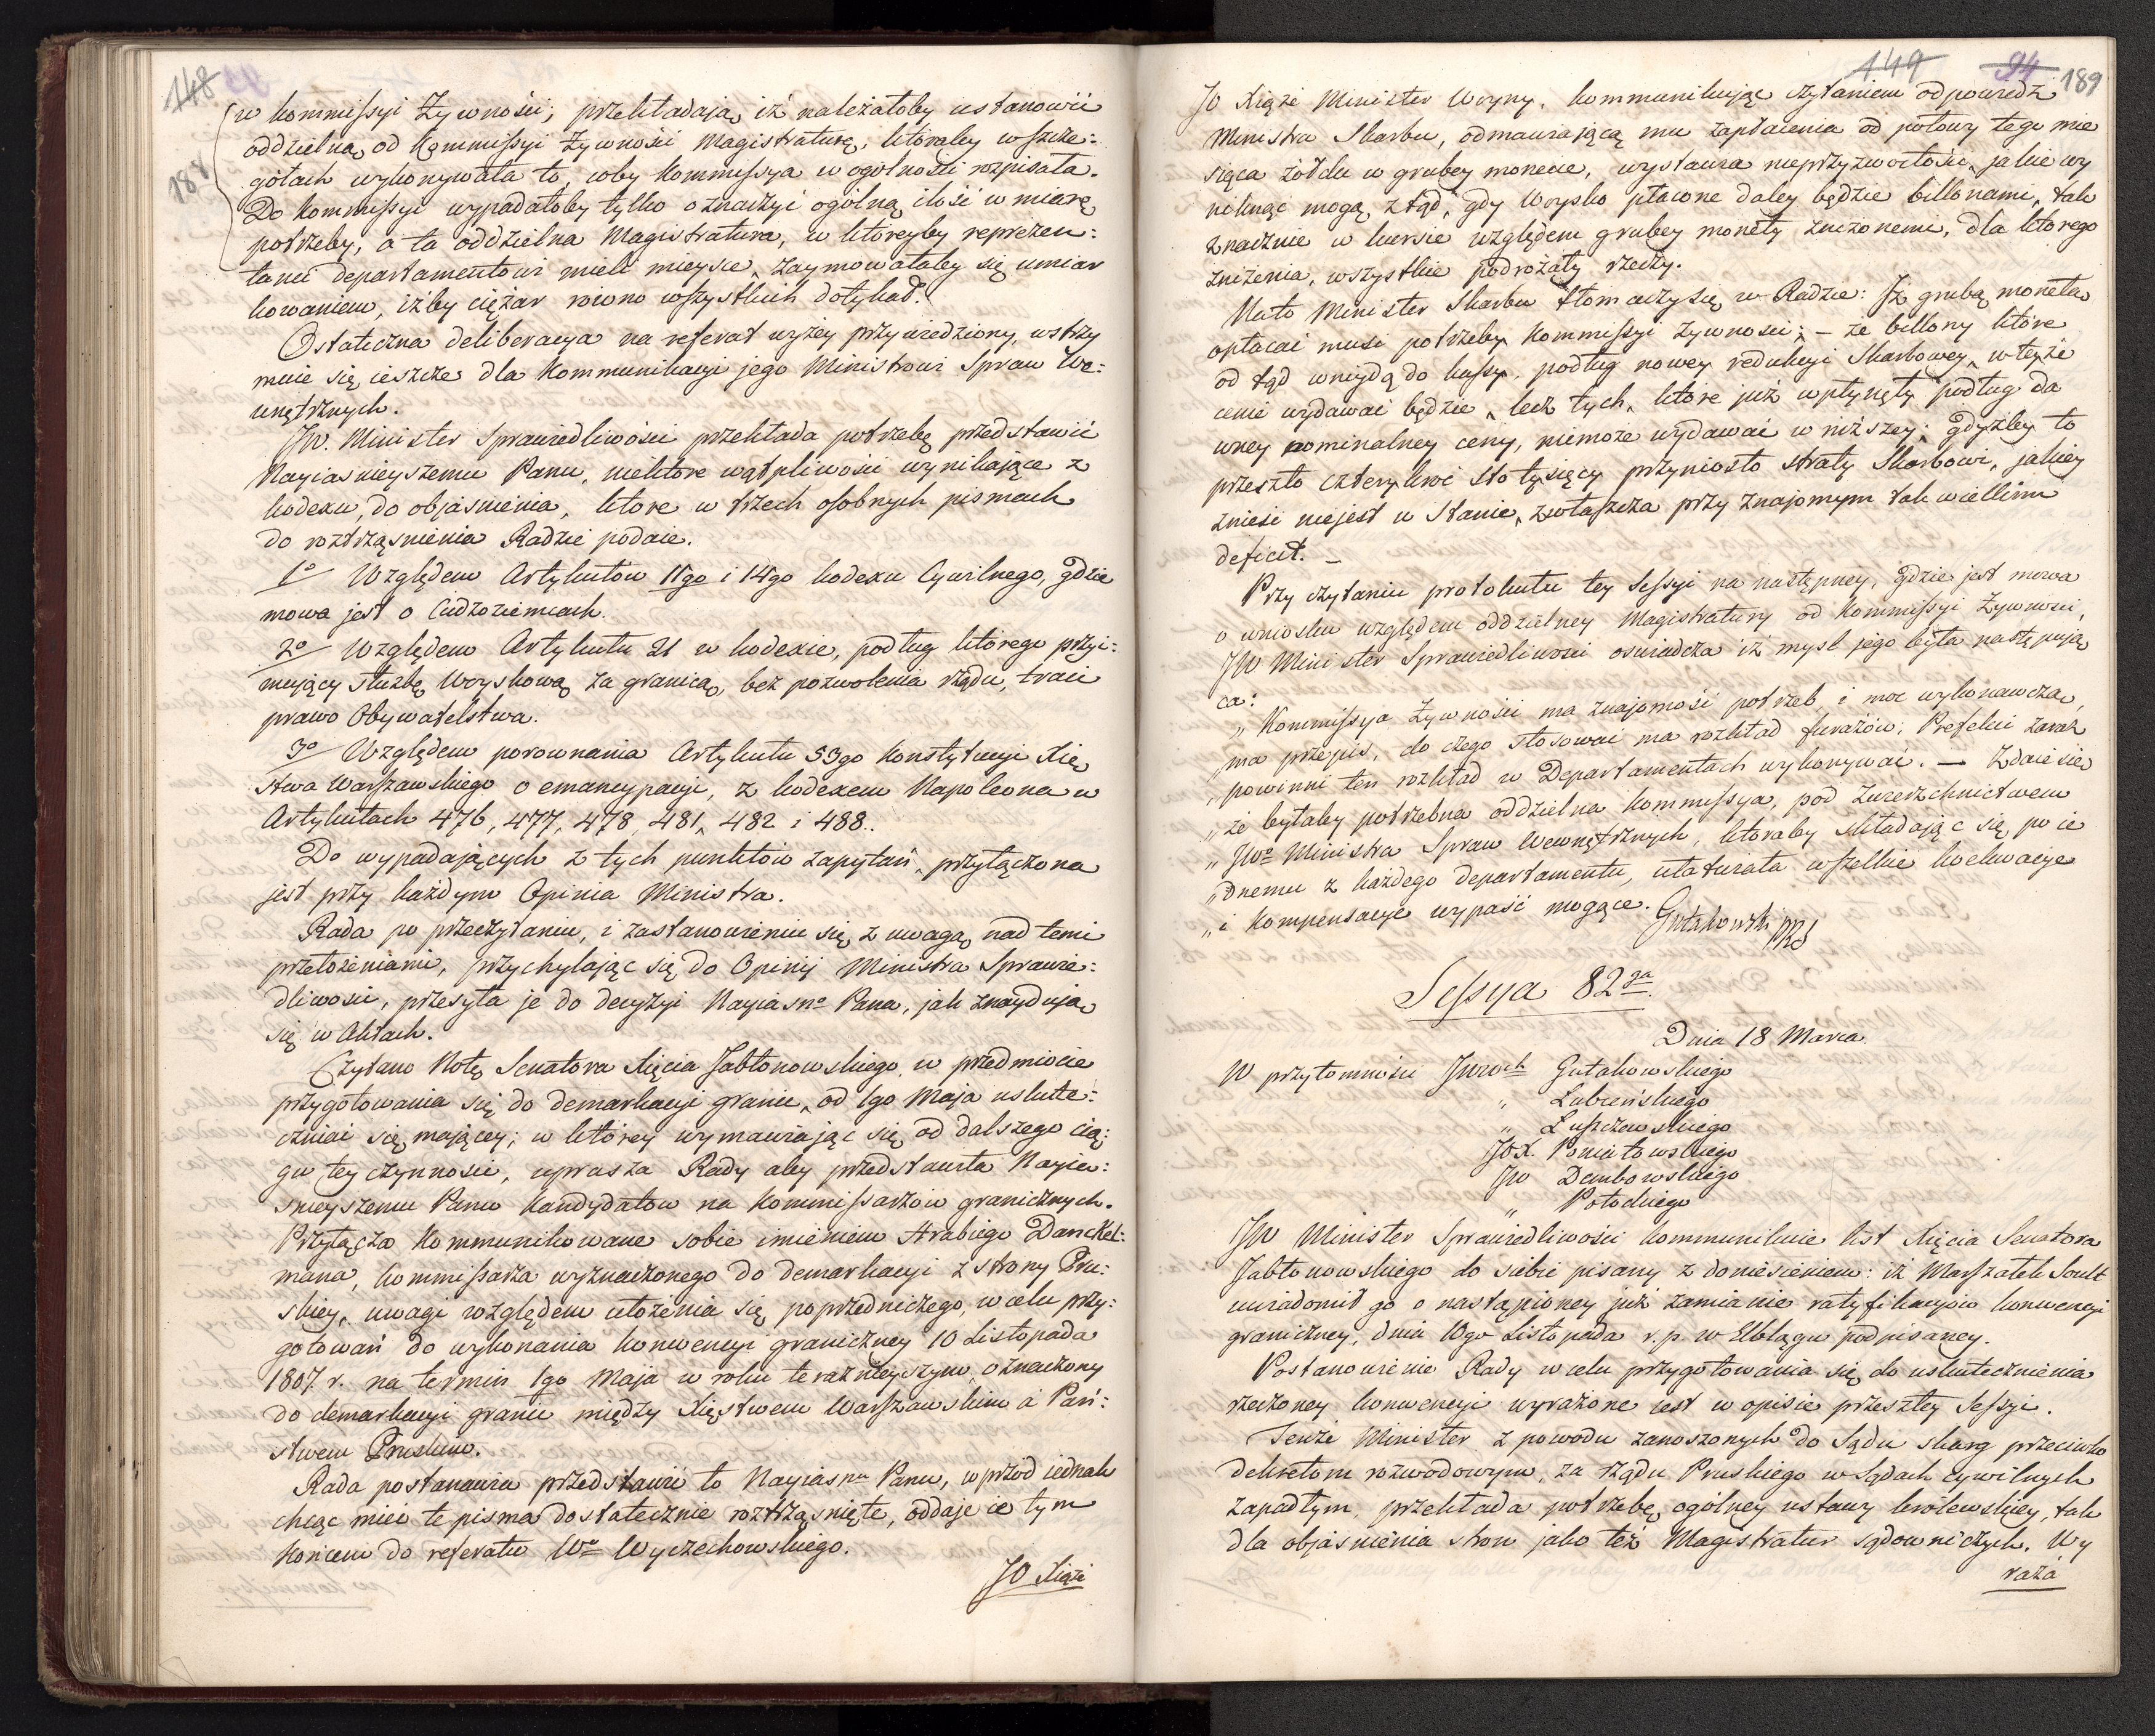 148
188
w Kommissyi Żywności; przekładają iż należałoby ustanowić
oddzielną od Kommissyi Żywności Magistraturę, któraby wszcze:
gółach wykonywała to, coby Kommissya w ogólności rozpisała.
Do Kommissyi wypadałoby tylko oznaczyć ogólną ilość w miarę
potrzeby, a ta oddzielna Magistratura, w któreyby reprezen:
tanci departamentowi mieli mieysce, zaymowałaby się umiar
kowaniem, iżby ciężar równo wszystkich dotykał.
Ostateczna deliberacya na referat wyżey przywiedziony, wstrzy
muie się ieszcze dla Kommunikacyi jego Ministrowi Spraw We:
wnętrznych.
JW. Minister Sprawiedliwości przekłada potrzebę przedstawić
Nayiaśnieyszemu Panu, niektóre wątpliwości wynikające z
kodexu, do objaśnienia, które w trzech osobnych pismach
do roztrząśnienia Radzie podaie.
1o/ Względem Artykułów 11go i 14go kodexu Cywilnego, gdzie
mowa jest o Cudzoziemcach.
2o/ Względem Artykułu 21 w kodexie, podług którego przyi:
mujący służbę Woyskową za granicą, bez pozwolenia rządu, traci
prawo Obywatelstwa.
3o/ Względem porownania Artykułu 53go Konstytucyi Xię
stwa Warszawskiego o emancypacyi, z kodexem Napoleona w
Artykułach 476, 477, 478, 481, 482 i 488.
Do wypadających z tych punktów zapytań, przyłączona
jest przy każdym Opinia Ministra.
Rada po przeczytaniu, i zastanowieniu się z uwagą nad temi
przełożeniami, przychylając się do Opinij Ministra Sprawie:
dliwości, przesyła je do decyzyi Nayiaśno Pana, jak znayduja
się w Aktach.
Czytano Notę Senatora Xięcia Jabłonowskiego, w przedmiocie
przygotowania się do demarkacyi granic, od 1go Maja uskute:
czniać się mającey; w którey wymawiając się od dalszego cią:
gu tey czynności, uprasza Rady aby przedstawiła Nayia:
śnieyszemu Panu Kandydatów na Kommissarzów granicznych.
Przyłącza Kommunikowane sobie imieniem Hrabiego Danckel:
mana, Kommissarza wyznaczonego do demarkacyi z strony Pru:
skiey, uwagi względem ułożenia się poprzedniczego, w celu przy:
gotowań do wykonania konwencyi graniczney 10 Listopada
1807. r. na termin 1go Maja w roku teraznieyszym, oznaczony
do demarkacyi granic między Xięstwem Warszawskim a Pań:
stwem Pruskim.
Rada postanawia przedstawić to Nayiasnu Panu, wprzód iednak
chcąc mieć te pisma dostatecznie roztrząśnięte, oddaje ie tym
końcem do referatu Wo Wyczechowskiego.
JO Xiąże
149
94
189
JO Xiąże Minister Woyny, kommunikując czytaniem odpowiedź
Ministra Skarbu, odmawiającą mu zapłacenia od połowy tego mie
siąca żołdu w grubey monecie, wystawia nieprzyzwoitości, jakie wy
niknąć mogą ztąd, gdy Woysko płacone daley będzie billonami, tak
znacznie w kursie względem grubey monety zniżonemi, dla którego
zniżenia, wszystkie podrożały rzeczy.
Na to Minister Skarbu tłomaczy się w Radzie: Iż grubą monetą
opłacać musi potrzeby Kommissyi Żywności; – że billony które
od tąd wniydą do kassy, podług nowey redukcyi Skarbowey, w teyże
cenie wydawać będzie, lecz tych, które już wpłynęły podług da
wney nominalney ceny, niemoże wydawać w niższey; gdyżby to
przeszło czterykroć sto tysięcy przyniosło straty Skarbowi, jakiey
znieść niejest w Stanie, zwłaszcza przy znajomym tak wielkim
deficit. –
Przy czytaniu protokułu tey Sessyi na następney, gdzie jest mowa
o wniosku względem oddzielney Magistratury od Kommissyi Żywności,
JW Minister Sprawiedliwości oswiadcza iż mysl jego była następują
ca:
„ Kommissya Żywności ma znajomość potrzeb, i moc wykonawczą,
„ ma przepis, do czego stosować ma rozkład furażów; Prefekci zaraz
„ powinni ten rozkład w Departamentach wykonywać. – Zdaie się
„ że byłaby potrzebna oddzielna kommissya, pod zwierzchnictwem
„ JWo Ministra Spraw Wewnętrznych, któraby składając się po ie
„ dnemu z każdego departamentu, ułatwiała wszelkie koekwacye
„ i kompensacye wypaść mogące. Gutakowski PRS
Sessya 82ga
Dnia 18 Marca
W przytomności JWWch Gutakowskiego
„ Łubieńskiego
„ Łuszczewskiego
JOX. Poniatowskiego
JW Dembowskiego
„ Potockiego
JW Minister Sprawiedliwości kommunikuie list Xięcia Senatora
Jabłonowskiego do siebie pisany z doniesieniem: iż Marszałek Soult
uwiadomił go o nastąpioney już zamianie ratyfikacyów konwencyi
graniczney, dnia 10go Listopada r. p. w Elblągu podpisaney.
Postanowienie Rady w celu przygotowania się do uskutecznienia
rzeczoney konwencyi wyrażone iest w opisie przeszłey Sessyi.
Tenże Minister z powodu zanoszonych do Sądu skarg przeciwko
dekretom rozwodowym, za rządu Pruskiego w Sądach cywilnych
zapadłym, przekłada potrzebę ogólney ustawy królewskiey, tak
dla objaśnienia stron jako też Magistratur sądowniczych. Wy
raża